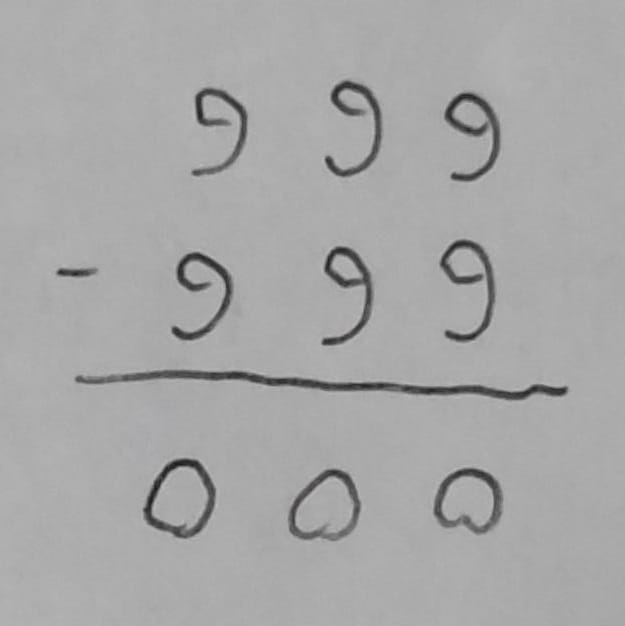 9 9 9
- 9 9 9
0 0 0